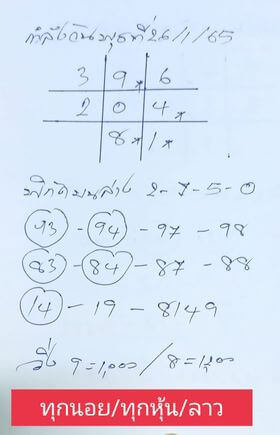 กำลังวันพุธที่26/1/65
3 9* 6
2 0 4*
8* 1*
พิกัดบนล่าง 2-7-5-0
93 - 94 - 97 - 98
83 - 84 - 87 - 88
14 - 19 - 8149
วิ่ง 9=1,000 / 8=1,200
ทุกนอย/ทุกหุ้น/ลาว